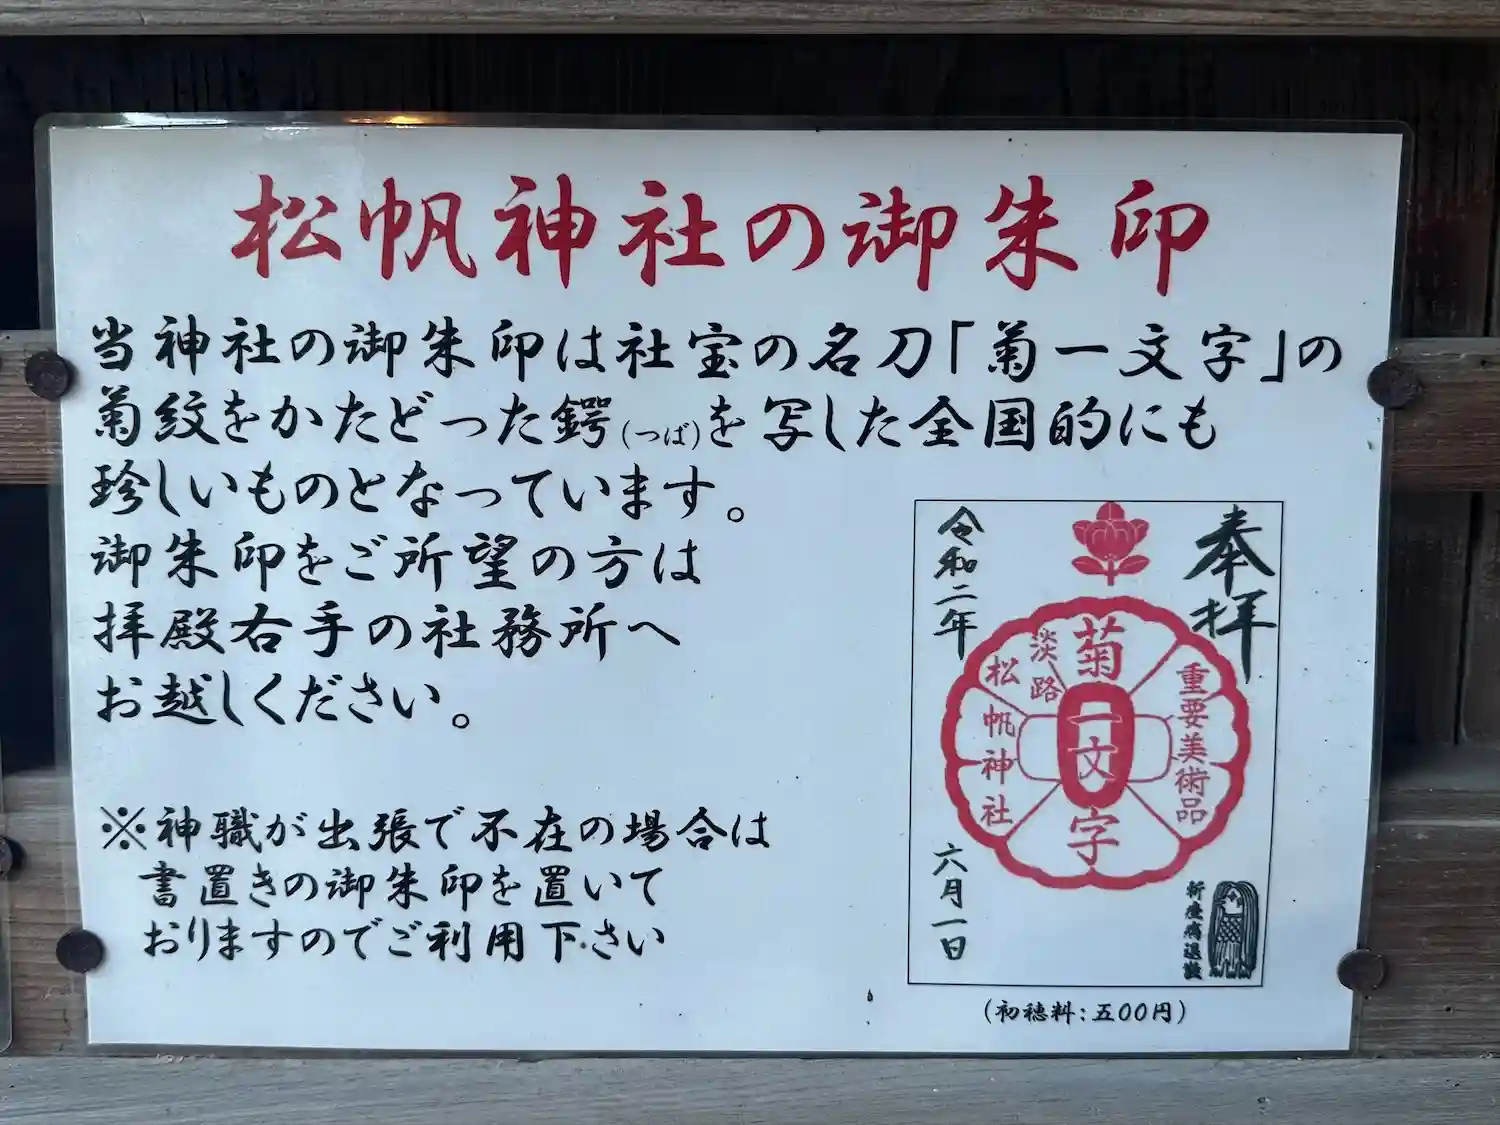 松帆神社の御朱印
当神社の御朱印は社宝の名刀「菊一文字」の
菊紋をかたどった鍔(つば)を写した全国的にも
珍しいものとなっています。
御朱印をご所望の方は
拝殿右手の社務所へ
お越しください。
※神職が出張で不在の場合は
書置きの御朱印を置いて
おりますのでご利用下さい
奉拝
重要美術品
菊一文字
淡路
松帆神社
令和二年
六月一日
(初穂料:五00円)